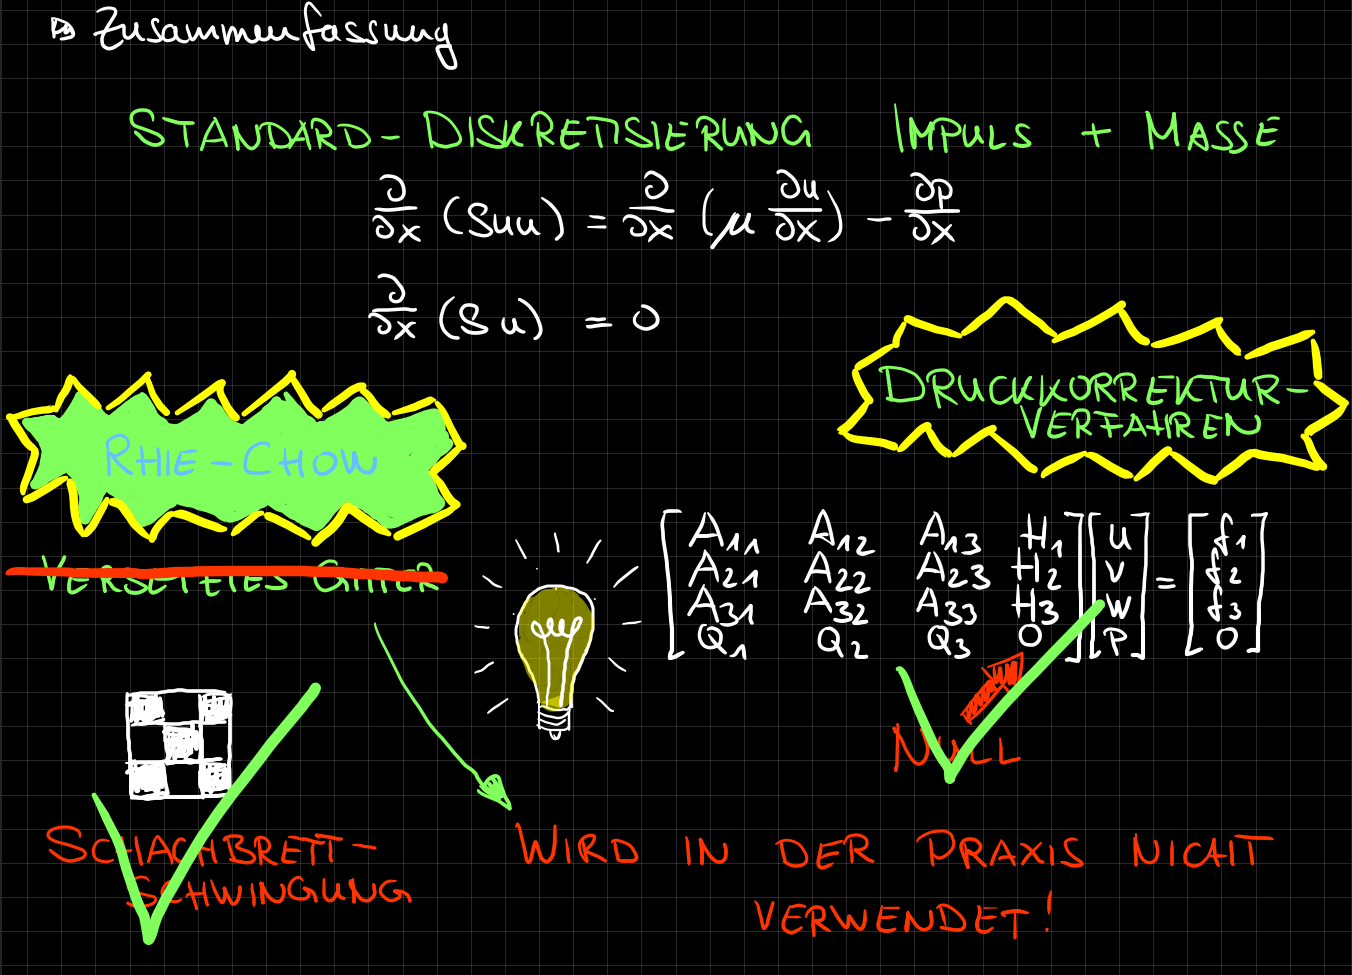 Zusammenfassung
STANDARD-DISKRETISIERUNG IMPULS + MASSE
∂/∂x (ρuu) = ∂/∂x (μ ∂u/∂x) - ∂p/∂x
∂/∂x (ρu) = 0
DRUCKKORREKTUR-
VERFAHREN
RHIE-CHOW
VERSETZTES GITTER
A₁₁ A₁₂ A₁₃ H₁ u = f₁
A₂₁ A₂₂ A₂₃ H₂ v f₂
A₃₁ A₃₂ A₃₃ H₃ w f₃
Q₁ Q₂ Q₃ 0 P 0
NULL
SCHACHBRETT-
SCHWINGUNG
WIRD IN DER PRAXIS NICHT
VERWENDET!